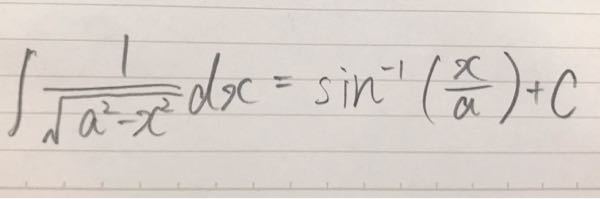 ∫ 1/√(a²-x²) dx = sin⁻¹(x/a)+C